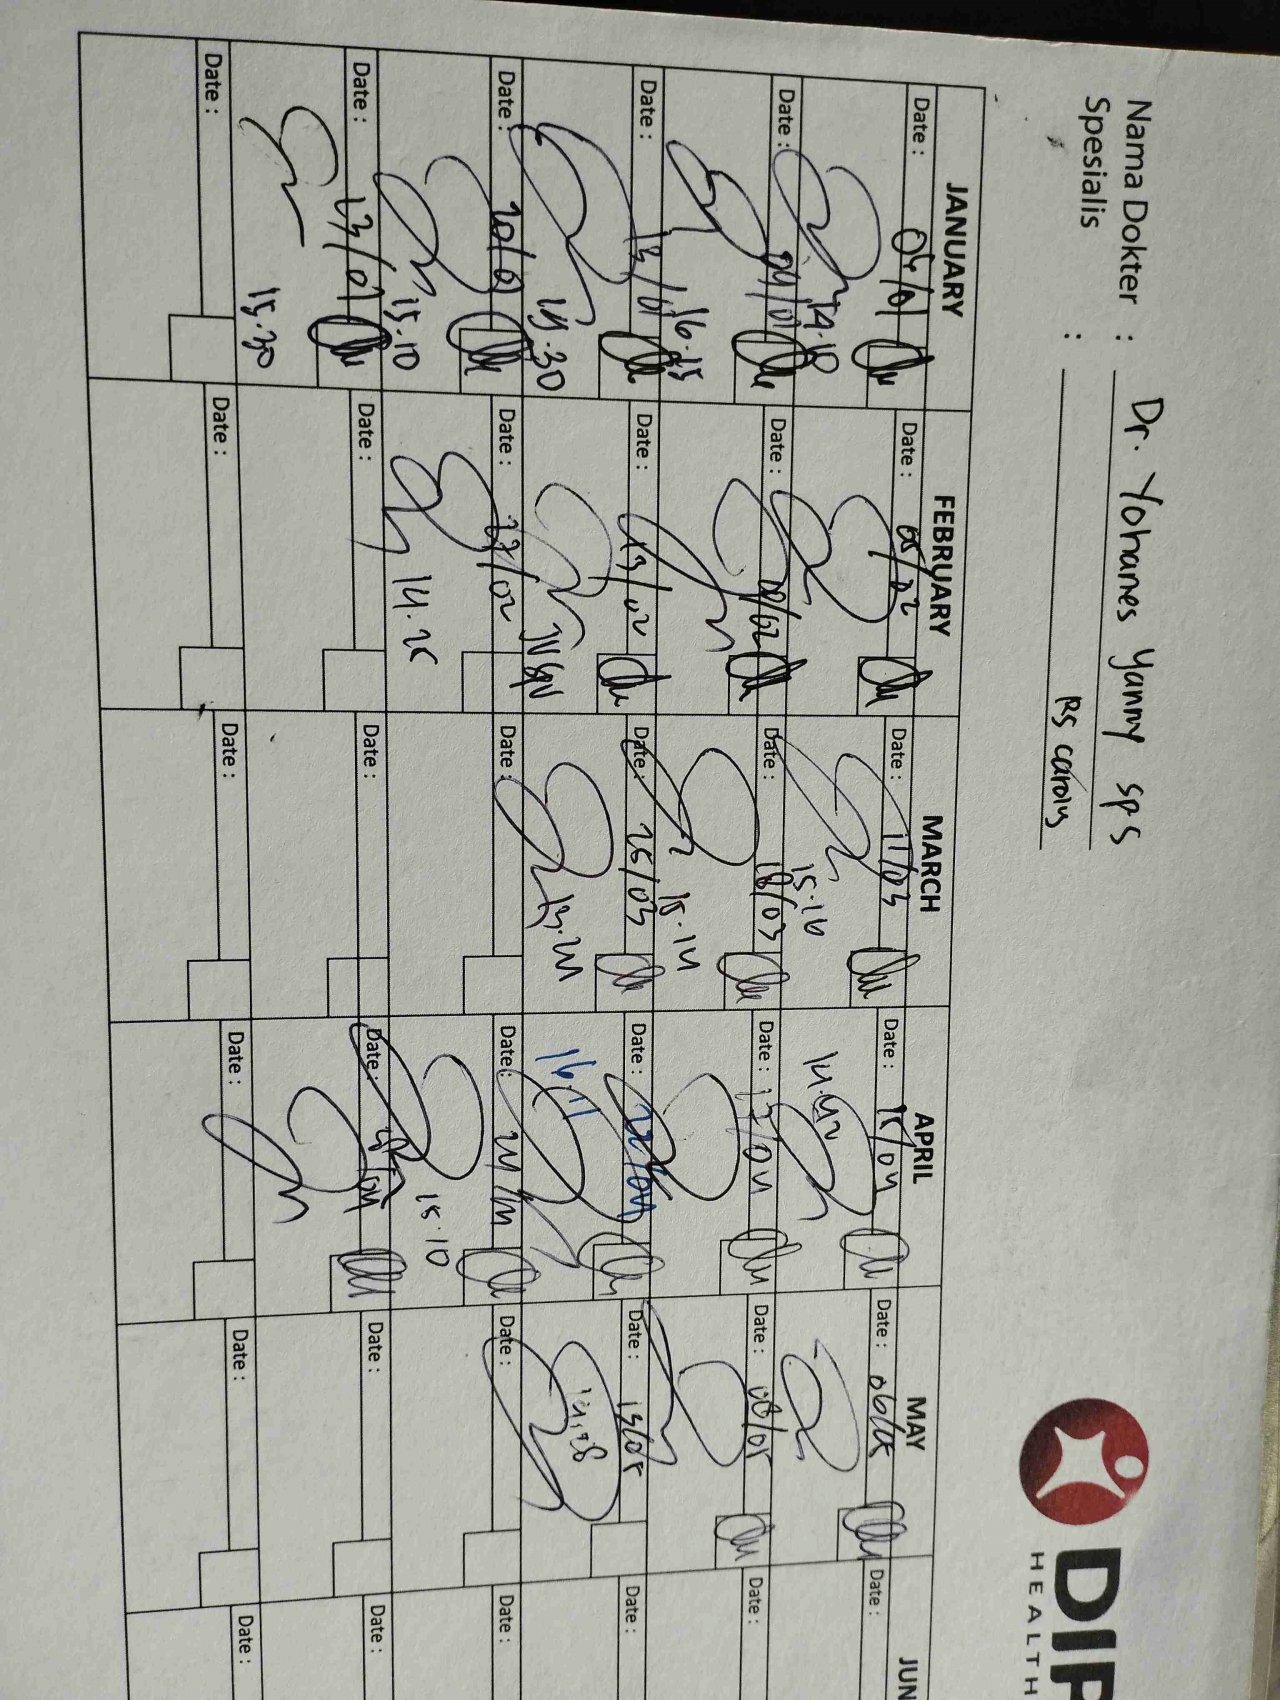 Nama Dokter : Dr. Yohanes Yanny sps
Spesialis : RS carolus
DIP
HEALTH
JANUARY FEBRUARY MARCH APRIL MAY JUN
Date : 04/01 Date : 05/02 Date : 11/03 Date : 15/04 Date : 06/05 Date :
14.10 15.16 14.42
Date : 09/01 Date : 08/02 Date : 18/03 Date : 17/04 Date : 08/05 Date :
16.15 15.14
Date : 13/01 Date : 13/02 Date : 25/03 Date : 22/04 Date : 13/05 Date :
14.30 13.24 16.11 14.28
Date : 20/01 Date : 27/02 Date : Date : 24/04 Date : Date :
15.10 14.25 15.10
Date : 23/01 Date : Date : Date : Date : Date :
15.30
Date : Date : Date : Date : Date : Date :